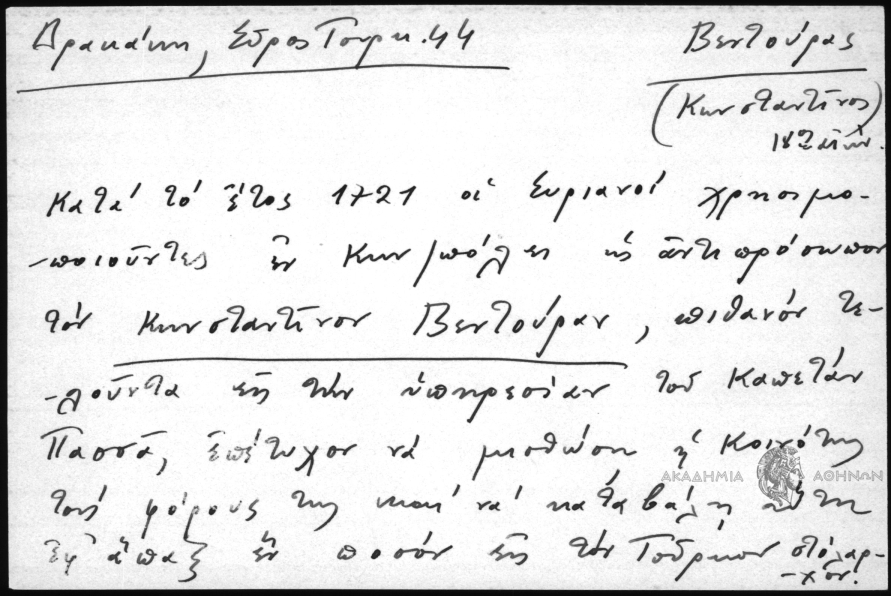 Δρακάκη, Σῦρος Τουρκ. 44
Βεντούρας
(Κωνσταντῖνος)
18ος αἰών.
Κατά τό ἔτος 1721 οἱ Συριανοί χρησιμο-
-ποιοῦντες ἐν Κων/πόλει ὡς ἀντιπρόσωπον
τόν Κωνσταντῖνον Βεντούραν, πιθανόν τε-
-λοῦντα εἰς τήν ὑπηρεσίαν τοῦ Καπετάν
Πασσᾶ, ἐπέτυχον νά μισθώσῃ ἡ Κοινότης
τούς φόρους της καί νά καταβάλῃ αὕτη
ἐφ' ἅπαξ ἕν ποσόν εἰς τόν Τοῦρκον στόλαρ-
-χον.
ΑΚΑΔΗΜΙΑ ΑΘΗΝΩΝ